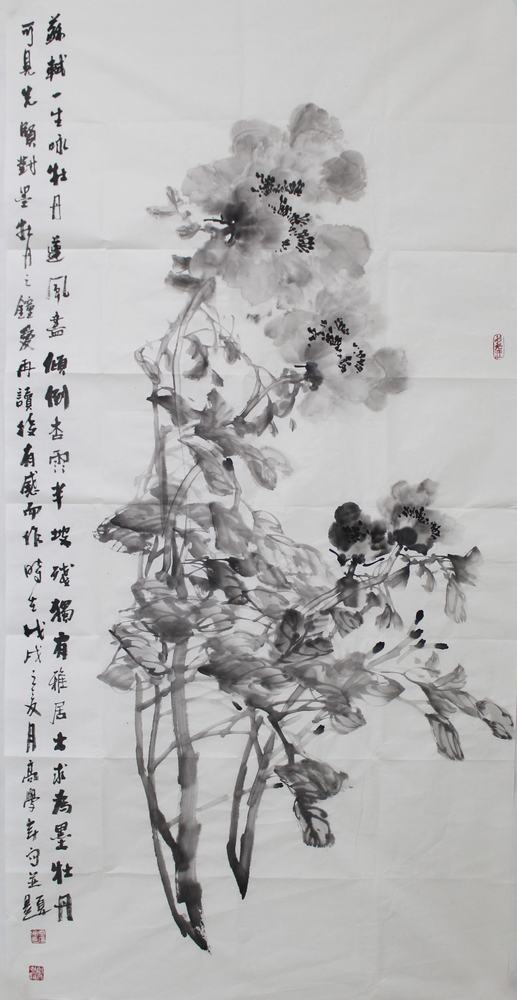 蘇軾一生咏牡丹蓮鳳盖傾倒杏雨半坡殘獨有雅居士求為墨牡丹
可見先賢對墨牡丹之鐘愛再讀後有感而作時在戊戌之夏月高學年寫並題